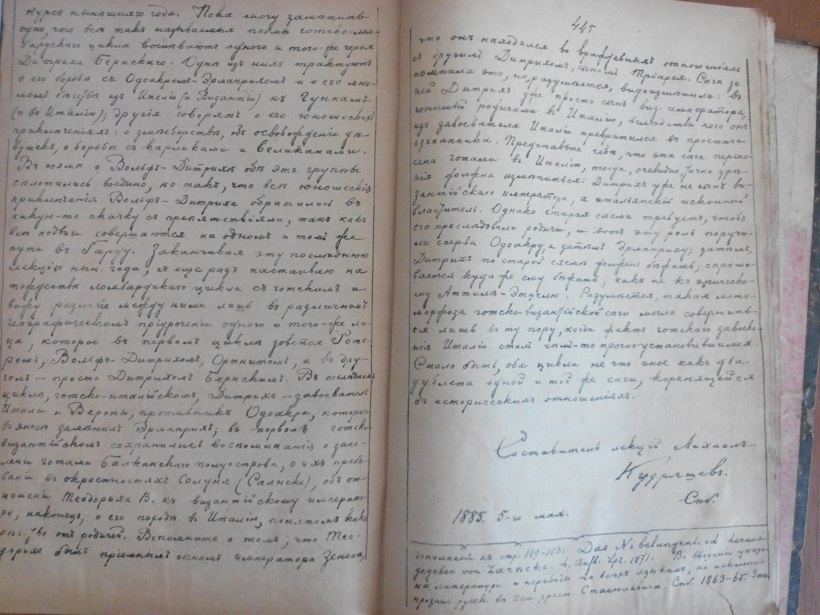 курсъ нынѣшняго года. Пока могу замѣтить
одно, что всѣ такъ называемыя поэмы готско-лом-
бардскаго цикла воспѣваютъ одного и того-же героя
Дитриха Бернскаго. Однѣ изъ нихъ трактуютъ
о его борьбѣ съ Одоакромъ-Эрманрихомъ и о его мни-
момъ бѣгствѣ изъ Италіи (= Византіи) къ Гуннамъ
(= въ Италію); другія говорятъ о его юношескихъ
приключеніяхъ: о змѣеборствѣ, объ освобожденіи дѣ-
вушекъ, о борьбѣ съ карликами и великанами.
Въ поэмѣ о Вольфъ-Дитрихѣ обѣ эти группы
сплотились воедино, но такъ, что всѣ юношескія
приключенія Вольфъ-Дитриха обратились въ
какую-то скачку съ препятствіями, такъ какъ
всѣ подвиги совершаются на одномъ и томъ же
пути въ Гарду. Заканчивая эту послѣднюю
лекцію нын. года, я еще разъ настаиваю на
тождествѣ ломбардскаго цикла съ готскимъ и
вижу разницу между ними лишь въ различномъ
географическомъ пріуроченіи одного и того-же ли-
ца, которое въ первомъ циклѣ зовется Готе-
ромъ, Вольфъ-Дитрихомъ, Ортнитомъ, а въ дру-
гомъ — просто Дитрихомъ Бернскимъ. Въ послѣднемъ
циклѣ, готско-италійскомъ, Дитрихъ — завоеватель
Италіи и Вероны, противникъ Одоакра, котораго
эпосъ замѣнилъ Эрманрихъ; въ первомъ готско-
византійскомъ сохранились воспоминанія о засе-
леніи готами Балканскаго полуострова, о ихъ пребы-
ваніи въ окрестностяхъ Солуня (Салнеке), объ от-
ношеніи Теодориха В. къ византійскому императо-
ру, наконецъ, о его походѣ въ Италію, понятомъ какъ
отъ родичей. Вспомните о томъ, что Тео-
дорихъ былъ пріемнымъ сыномъ императора Зенона,
445
что онъ находился во враждебныхъ отношеніяхъ
съ другимъ Дитрихомъ, сыномъ Тріарея. Сага за-
помнила это, но, разумѣется, видоизмѣнила: въ
ней Дитрихъ уже просто сынъ виз. императора,
родичами въ Италію, вслѣдствіе чего онъ
изъ завоевателя Италіи превратился въ простого
изгнанника. Представьте себѣ, что эта сага перене-
сена готами въ Италію, тогда, очевидно, точка зрѣ-
нія должна измѣниться: Дитрихъ уже не сынъ ви-
зантійскаго императора, а итальянскій исконный
властитель. Однако старая схема требуетъ, чтобъ
его преслѣдовали родичи, и вотъ эту роль поручи-
ли сперва Одоакру, а затѣмъ Эрманриху; затѣмъ,
Дитрихъ по старой схемѣ долженъ бѣжать; спраши-
вается куда же ему бѣжать, какъ не къ эпическо-
му Аттилѣ-Этцелю? Разумѣется, такая мета-
морфоза готско-византійской саги могла совершить-
ся лишь въ ту пору, когда фактъ готскаго завоева-
нія Италіи сталъ чѣмъ-то прочно установившимся.
Стало быть, оба цикла не что иное какъ два
дублета одной и той же саги, коренящейся
въ историческихъ отношеніяхъ.
Составитель лекцій Михаилъ
Кудряшевъ.
Спб.
1885. 5-го мая.
Дополненіе къ стр. 149-153: Das Nibelungenlied herausgegeben von Zarncke. 4. Aufl. Lpz. 1871. В.
на литературу и переводы на всѣхъ языкахъ, не
русск. въ Ист. христ. Стасюлевича. Спб. 1863-65.